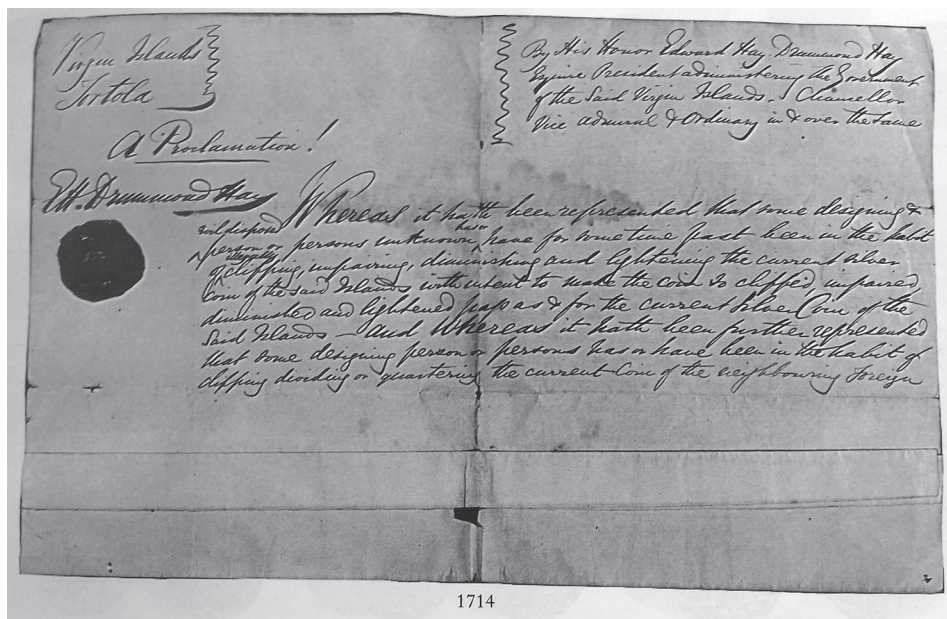 Virgin Islands
Tortola
By His Honor Edward Hay Drummond Hay
Esquire President administering the Government
of the Said Virgin Islands - Chancellor
Vice Admiral & Ordinary in & over the same
A Proclamation!
EH. Drummond Hay
Whereas it hath been represented that some designing &
evil disposed person or persons unknown has or have for some time past been in the habit
of illegally clipping, impairing, diminishing and lightening the current silver
Coin of the said Islands with intent to make the coin so clipped impaired
diminished and lightened pass as & for the current Silver Coin of the
Said Islands - And Whereas it hath been further represented
that some designing person or persons has or have been in the habit of
clipping dividing or quartering the current Coin of the neighbouring Foreign
1714